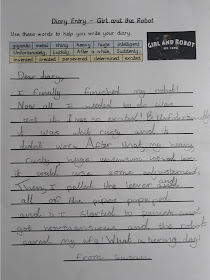 Diary Entry - Girl and the Robot
Use these words to help you write your diary.
gigantic metal shiny heavy huge intelligent
Unfortunately Luckily After a while Suddenly
invented created persevered determined excited
GIRL AND ROBOT
Dear diary,
I finally finished my robot!
Now all I needed to do was
test it. I was so excited! But
it was and it
didn't work. After that my heavy
rusty, huge looked like
it could use some adjustments,
Then, I pulled the leaver and
all of the pipes poped
and it started to
got and the robot
saved my life! What a day!
from Susan